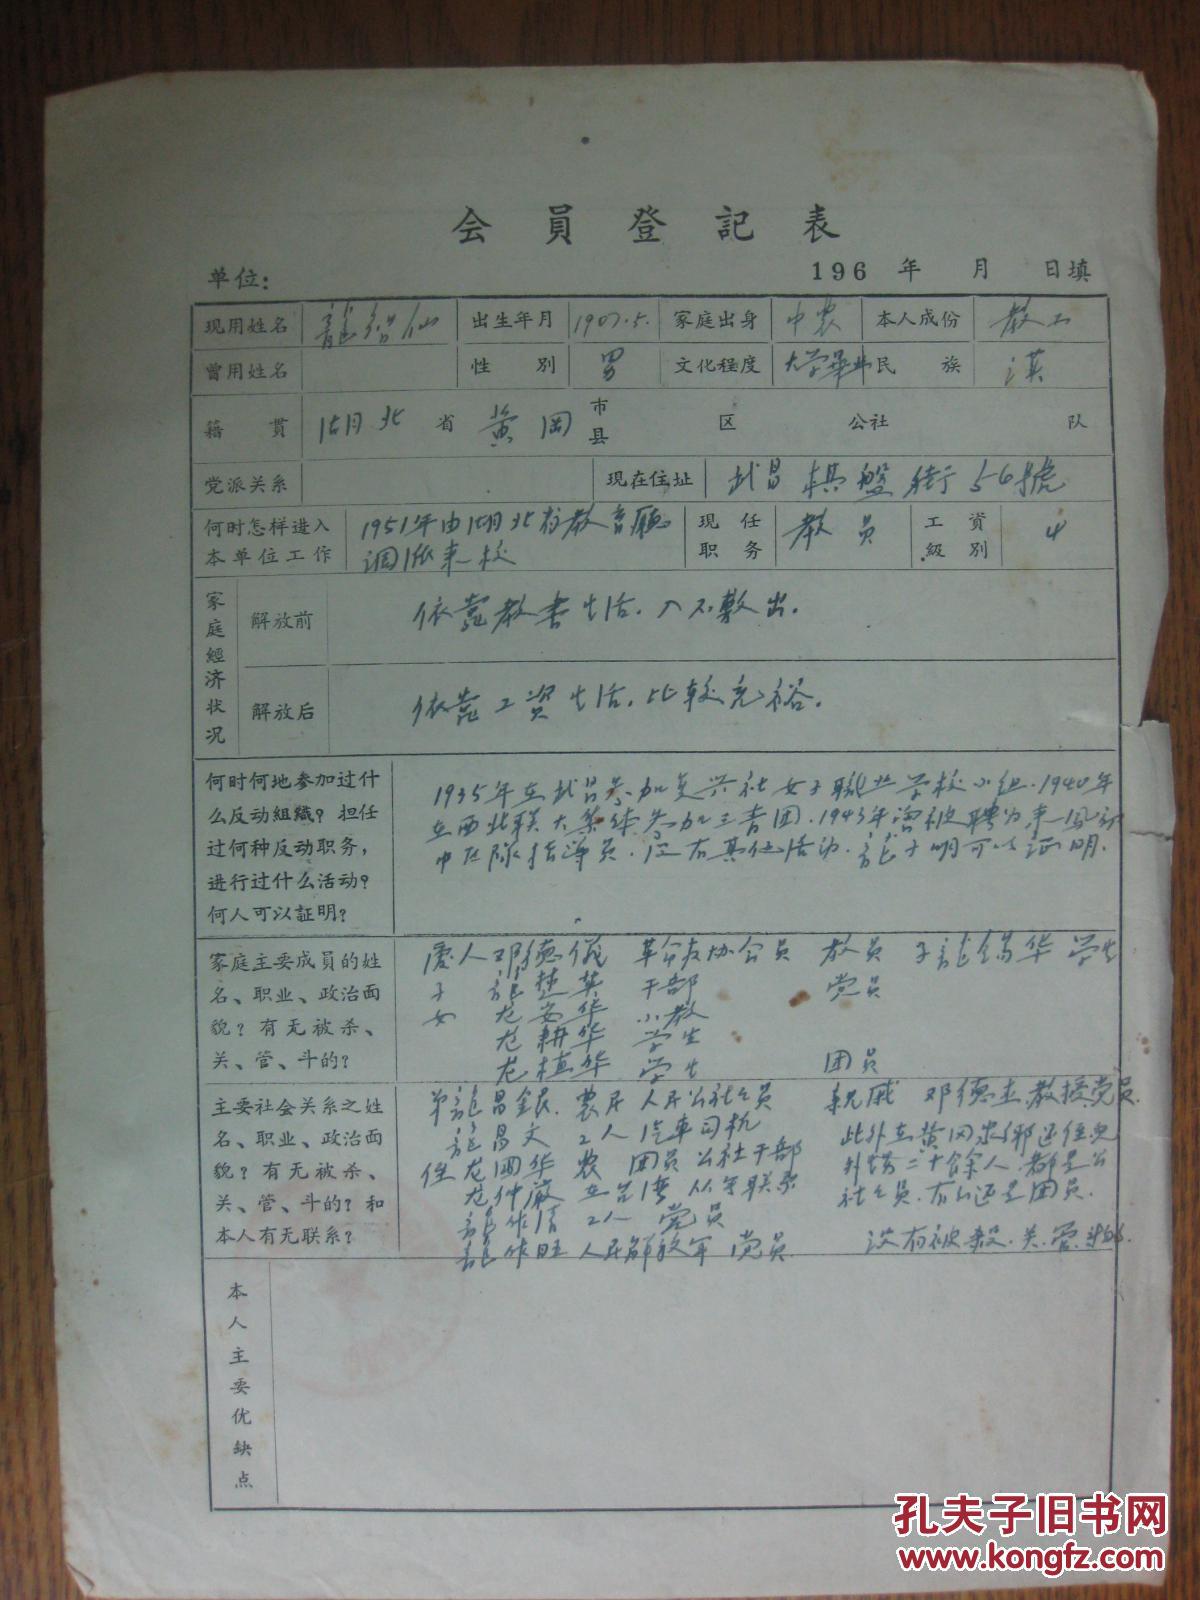 会員登記表
单位： 196 年 月 日填
现用姓名 龍紹仙 出生年月 1907.5. 家庭出身 中农 本人成份 教工
曾用姓名 性别 男 文化程度 大学畢业 民族 漢
籍貫 湖北 省 黄冈 市县 区 公社 队
党派关系 現在住址 武昌棋盤街56號
何时怎样进入本单位工作 1951年由湖北省教育廳
调派来校 現任职务 教員 工資級別 4
家庭經济状况 解放前 依靠教書生活，入不敷出．
解放后 依靠工資生活，比較充裕．
何时何地参加过什么反动組織？担任过何种反动职务，进行过什么活动？何人可以証明？
1935年在武昌参加复兴社女子職业学校小组．1940年
在西北联大集体参加三青团．1943年曾被聘为来凤
中区隊指導员．没有其他活动．龍子明可以証明．
家庭主要成員的姓名、职业、政治面貌？有无被杀、关、管、斗的？
爱人 邓德儀 教员 子龍 华 学生
子 龍楚英 干部 党员
女 龙安华 小教
龙耕华 学生
龙植华 学生 团员
主要社会关系之姓名、职业、政治面貌？有无被杀、关、管、斗的？和本人有无联系？
弟龍昌銀 農民 人民公社社员 親戚 邓德 教授党员．
龍昌文 工人 汽車司机 此外在黄冈
侄龙國华 农 团员 公社干部 二十餘人．都是公
龙仲 在台湾 从无联系 社社员．有的还是团员．
龍作 工人 党员
龍作旺 人民解放军 党员 没有被殺．关．管．斗的．
本人主要优缺点
孔夫子旧书网
www.kongfz.com